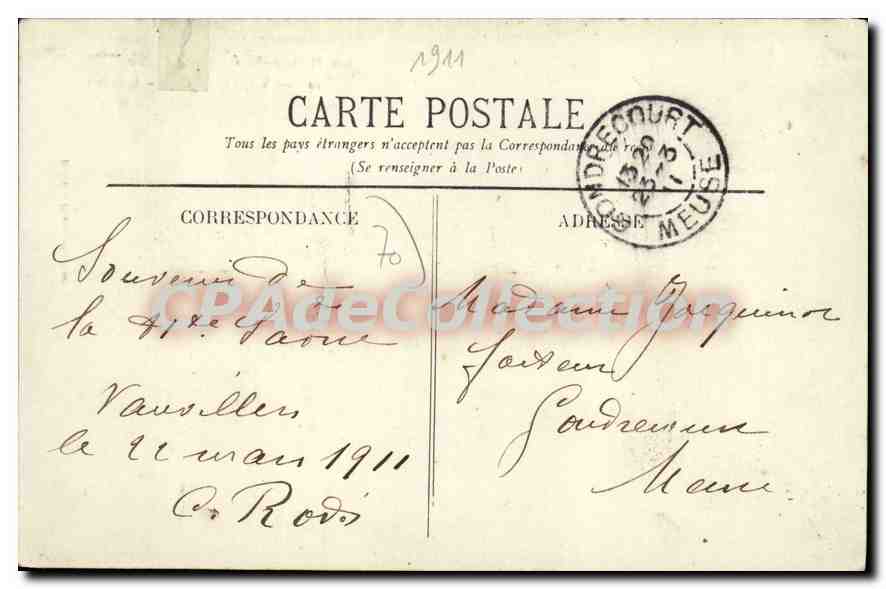 1911
CARTE POSTALE
Tous les pays étrangers n'acceptent pas la Correspondance
(Se renseigner à la Poste)
GONDRECOURT
13 20
23-3
11
MEUSE
CORRESPONDANCE
ADRESSE
70
Souvenir de
la Hte Saône
Vauvillers
le 22 mars 1911
CPAdeCollection
Madame Jacquinot
facteur
Gondrecourt
Meuse